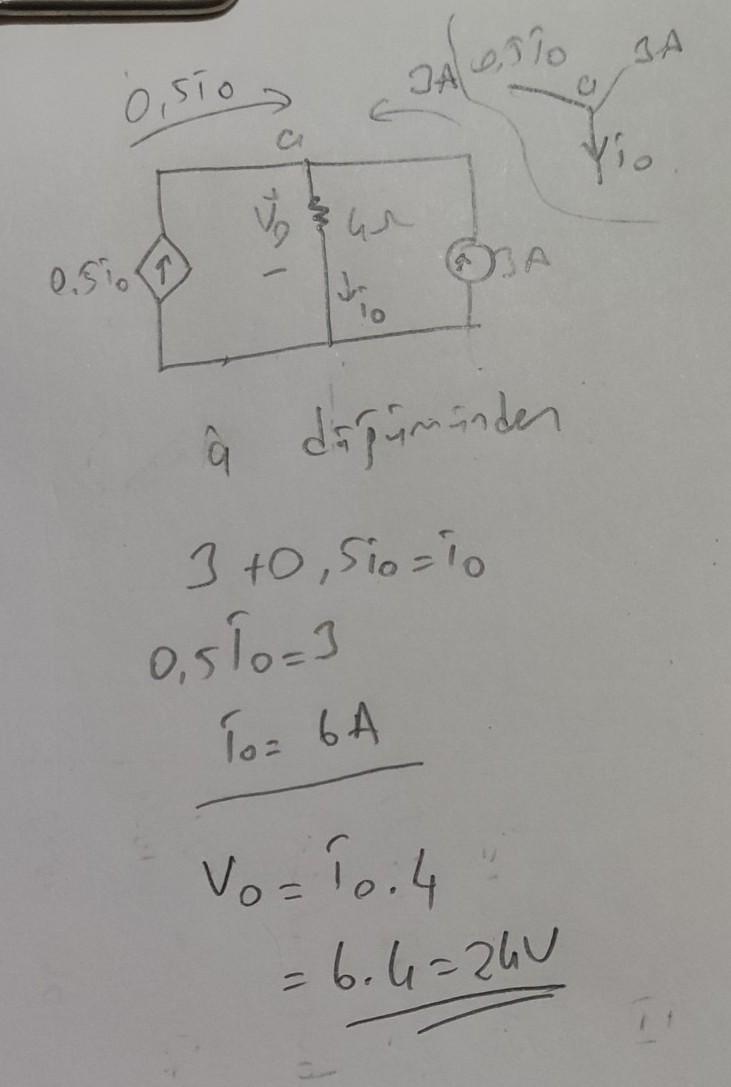 0,5i₀
3A
0,5i₀
3A
a
i₀
a
V₀
4Ω
0.5i₀
3A
i₀
a düğümünden
3+0,5i₀=i₀
0,5i₀=3
i₀= 6A
V₀ = i₀.4
= 6.4=24V